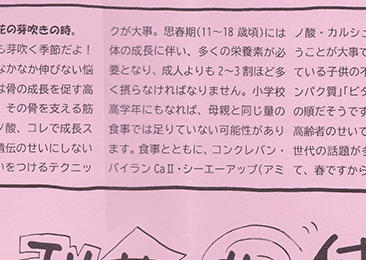 花の芽吹きの時。
も芽吹く季節だよ！
なかなか伸びない悩
は骨の成長を促す高
、その骨を支える筋
ノ酸、コレで成長ス
遺伝のせいにしない
いをつけるテクニッ
クが大事。思春期(11～18 歳頃)には
体の成長に伴い、多くの栄養素が必
要となり、成人よりも 2～3 割ほど多
く摂らなければなりません。小学校
高学年にもなれば、母親と同じ量の
食事では足りていない可能性があり
ます。食事とともに、コンクレバン・
バイラン CaⅡ・シーエーアップ(アミ
ノ酸・カルシュ
うことが大事で
ている子供の不
ンパク質」「ビタ
の順だそうです
高齢者のせいで
世代の話題が多
て、春ですから